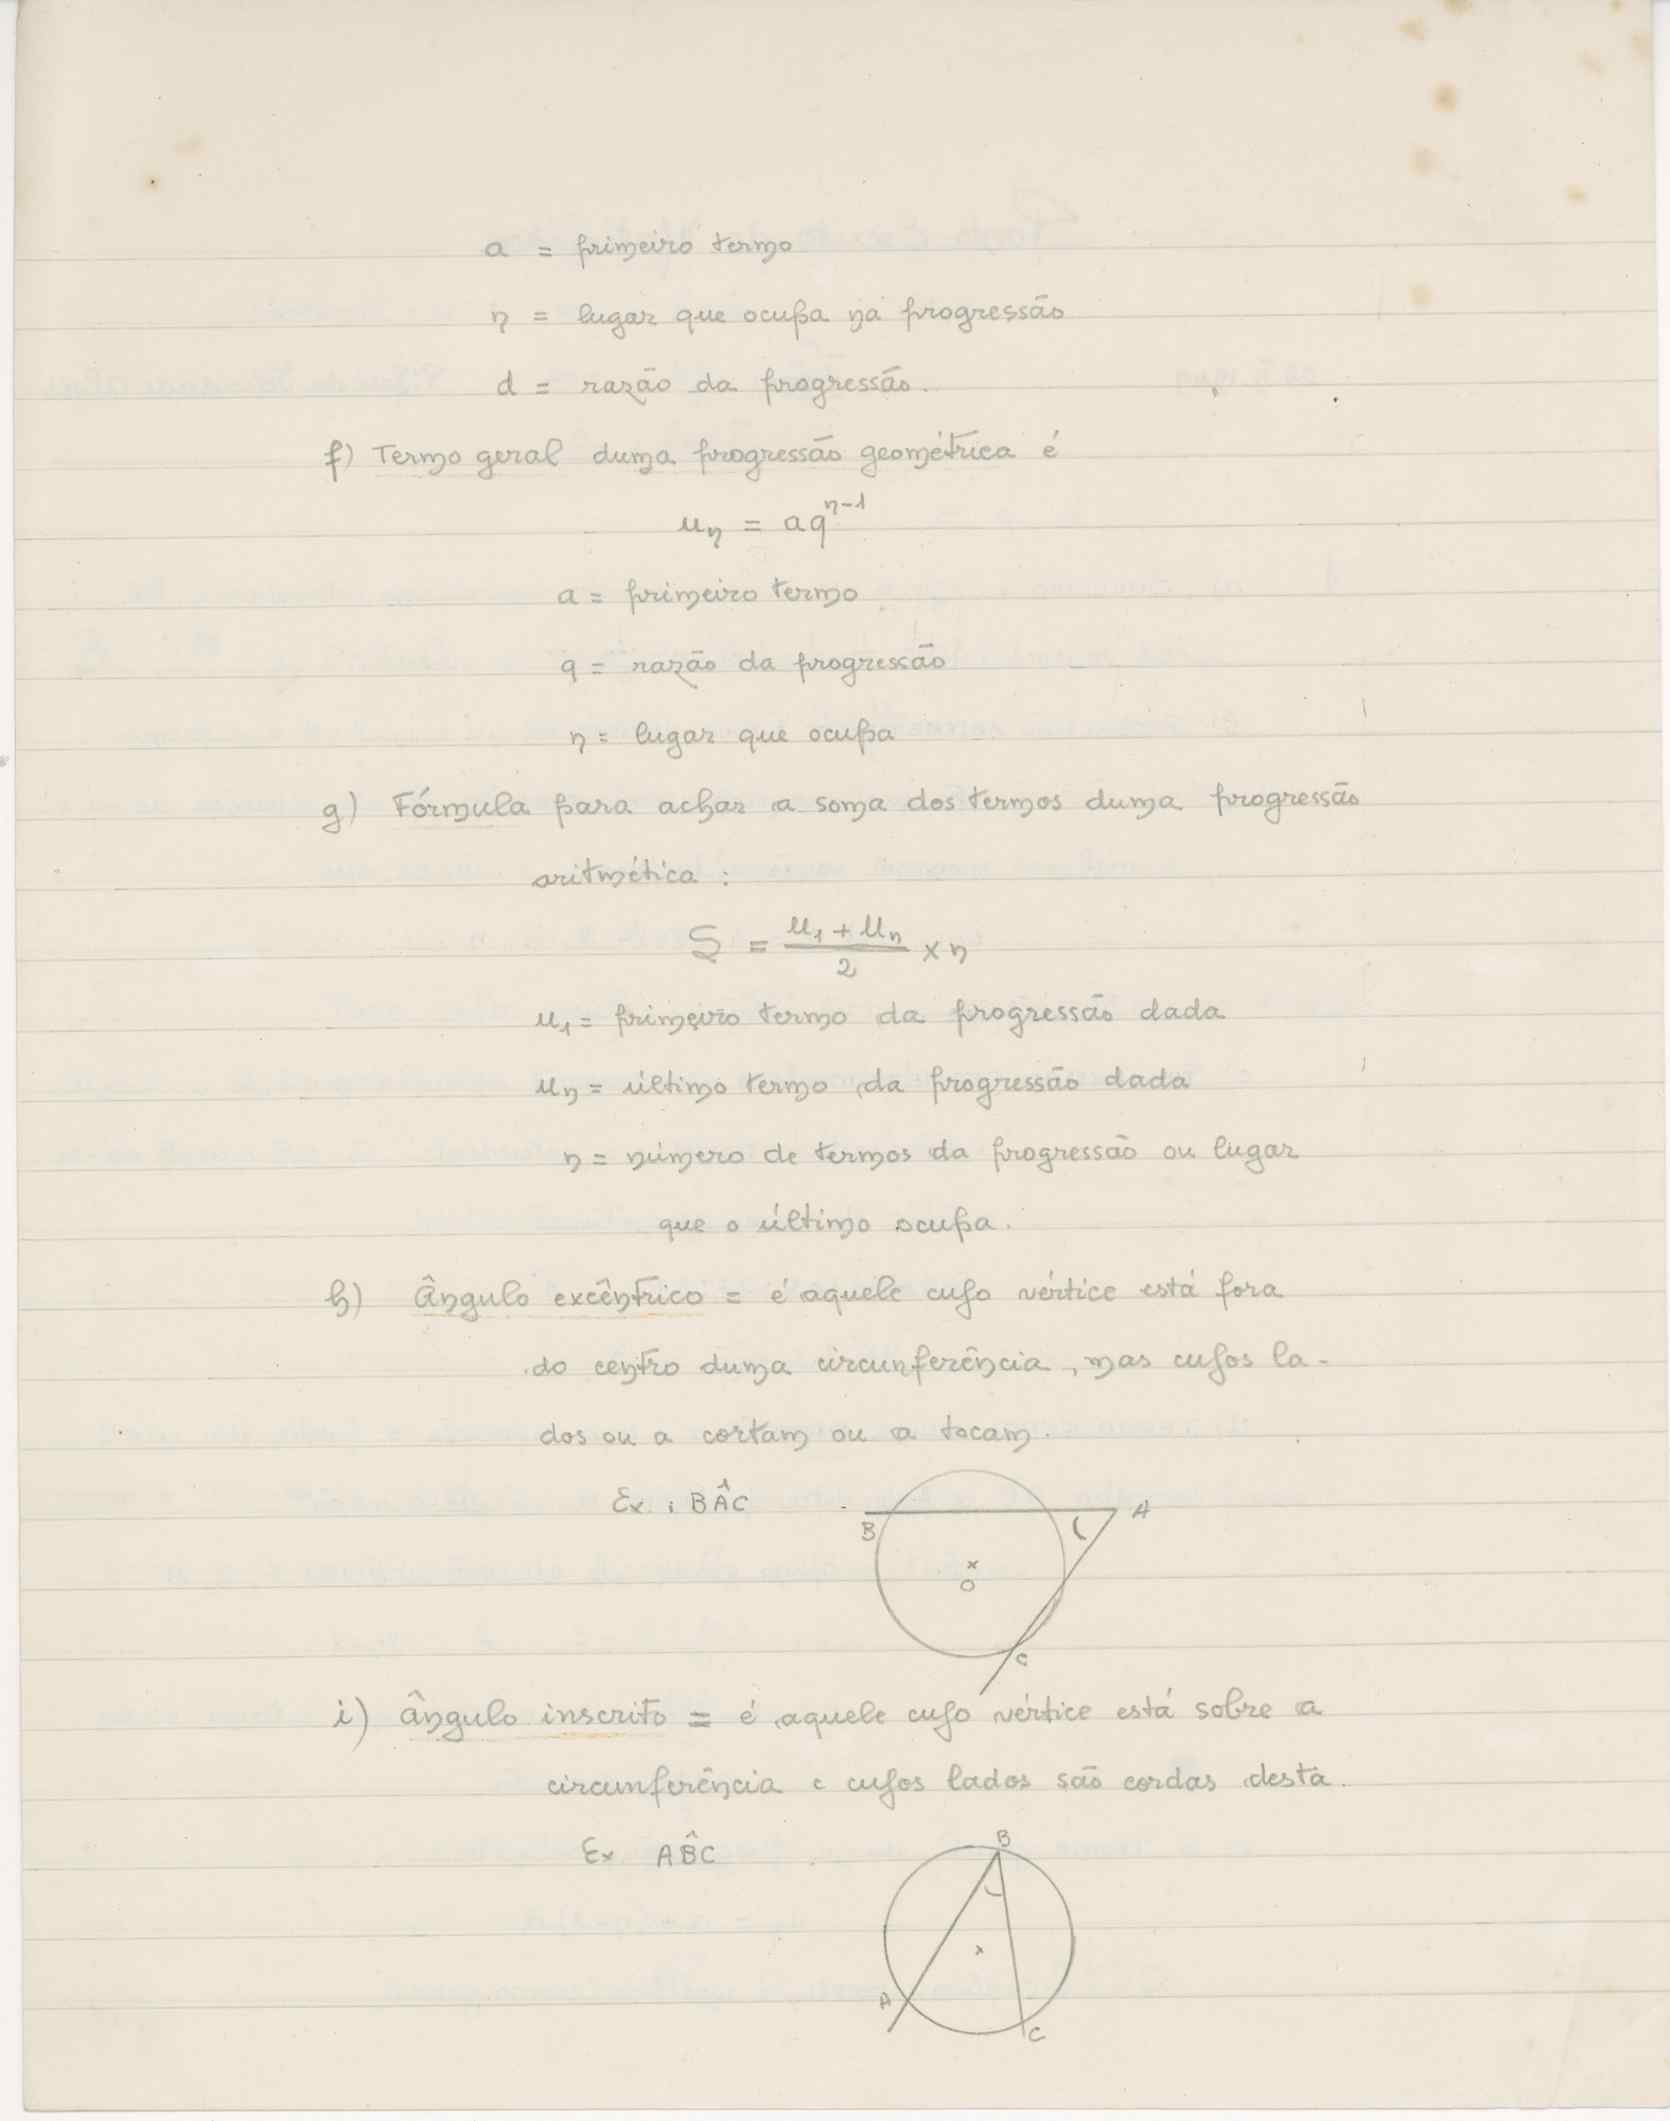 a = primeiro termo
n = lugar que ocupa na progressão
d = razão da progressão.
f) Termo geral duma progressão geométrica é
uₙ = aqⁿ⁻¹
a = primeiro termo
q = razão da progressão
n = lugar que ocupa
g) Fórmula para achar a soma dos termos duma progressão
aritmética :
S = (u₁ + uₙ)/2 × n
u₁ = primeiro termo da progressão dada
uₙ = último termo da progressão dada
n = número de termos da progressão ou lugar
que o último ocupa.
h) Ângulo excêntrico = é aquele cujo vértice está fora
do centro duma circunferência, mas cujos la-
dos ou a cortam ou a tocam.
Ex. : BÂC
A
B
O
C
i) ângulo inscrito = é aquele cujo vértice está sobre a
circunferência e cujos lados são cordas desta.
Ex AB̂C
B
A
C